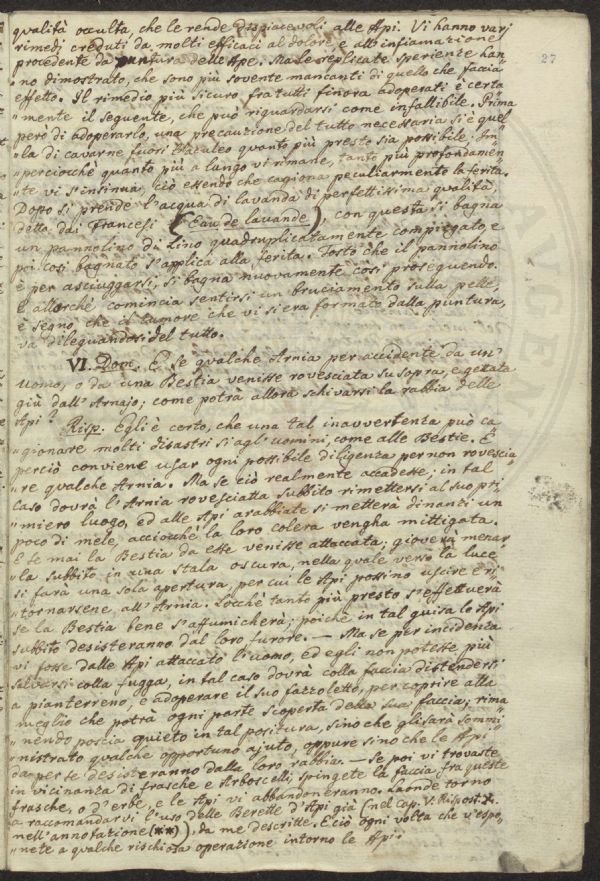 27
qualità occulta, che le rende dispiacevoli alle Api. Vi hanno varj
rimedj creduti da molti efficaci al dolore e all'infiamazione
procedente da puntura delle Ape. Ma le replicate sperienze han„
„no dimostrato, che sono più sovente mancanti di quello che faccia„
effetto. Il rimedio più sicuro fra tutti finora adoperati è certa
„mente il seguente, che può riguardarsi come infallibile. Prima
però di adoperarlo, una precauzione del tutto necessaria si è quel
„la di cavarne fuori l'Aculeo quanto più presto sia possibile. Im„
„perciochè quanto più a lungo vi rimane, tanto più profondamen„
„te vi s'insinua, ciò essendo che cagiona peculiarmente la ferita.
Dopo si prende l'acqua di lavanda di perfettissima qualità,
detta dai Francesi (Eau de lavande), con questa si bagna
un pannolino di Lino quadruplicatamente compiegato, e
poi così bagnato s'applica alla ferita. Tosto che il pannolino
è per asciuggarsi, si bagna nuovamente così proseguendo.
E allorchè comincia sentirsi un bruciamento sulla pelle,
è segno, che il tumore che vi si era formato dalla puntura,
va dileguandosi del tutto.
VI. Dom. E se qualche Arnia per accidente da un'
Uomo, o da una Bestia venisse rovesciata su sopra, e gettata
giù dall'Arnajo; come potrà allora schivarsi la rabbia delle
Api?
Risp. Egli è certo, che una tal inavvertenza può ca„
„gionare molti disastri sì agl'uomini, come alle Bestie. E
perciò conviene usar ogni possibile diligenza per non rovescia„
„re qualche Arnia. Ma se ciò realmente accadesse; in tal
caso dovrà l'Arnia rovesciatta subbito rimettersi al suo pri„
„miero luogo, ed alle Api arabbiate si metterà dinanti un
poco di mele, acciochè la loro colera vengha mittigata.
E se mai la Bestia da esse venisse attaccata; gioverà menar
„la subbito in una stala oscura, nella quale verso la luce
si farà una sola apertura, per cui le Api possino uscire e ri„
„tornarsene all'Arnia. Locchè tanto più presto s'effettuerà
se la Bestia bene s'affumicherà; poichè in tal guisa le Api
subbito desisteranno dal loro furore. — Ma se per incidenza
vi fosse dalle Api attaccato l'uomo, ed egli non potesse più
salvarsi colla fugga, in tal caso dovrà colla faccia distendersi
a pianterreno, e adoperare il suo fazzoletto, per coprire alla
meglio che potrà ogni parte scoperta della sua faccia; rima
„nendo poscia quieto in tal positura, sino che gli sarà sommi„
„nistrato qualche opportuno ajuto, oppure sino che le Api
da per se desisteranno dalla loro rabbia. — Se poi vi trovaste
in vicinanza di frasche e Arboscelli; spingete la faccia fra queste
frasche, o d'erbe, e le Api vi abbandoneranno. Laonde torno
a raccomandarvi l'uso delle Berette d'Api già (nel cap. V. Rispost.
nell'annotazione (**)), da me descritte. E ciò ogni volta che v'espo„
„nete a qualche rischiosa operazione intorno le Api.